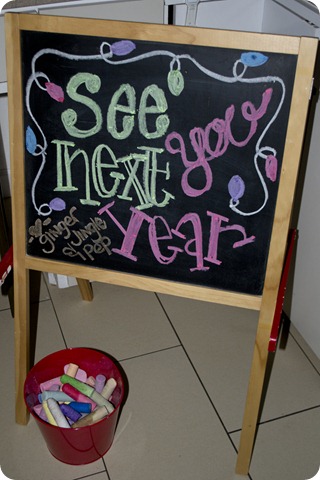 See
next you
Year
ginger
Jingle
& pep